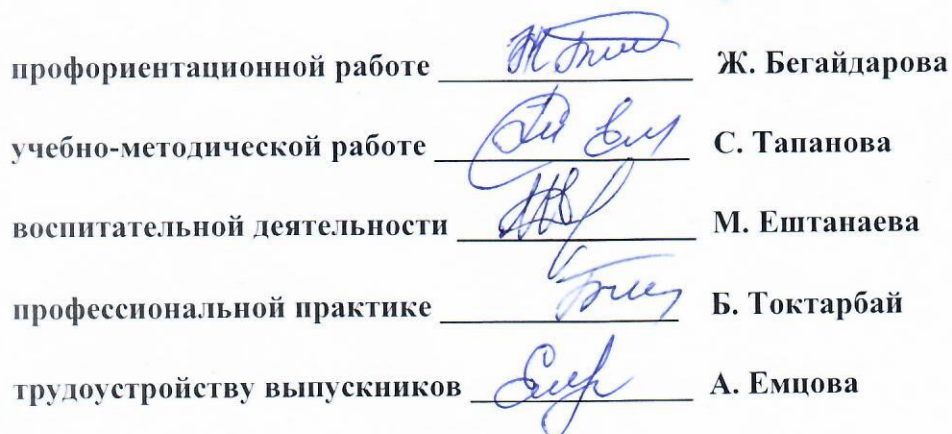 профориентационной работе Ж. Бегайдарова
учебно-методической работе С. Тапанова
воспитательной деятельности М. Ештанаева
профессиональной практике Б. Токтарбай
трудоустройству выпускников А. Емцова